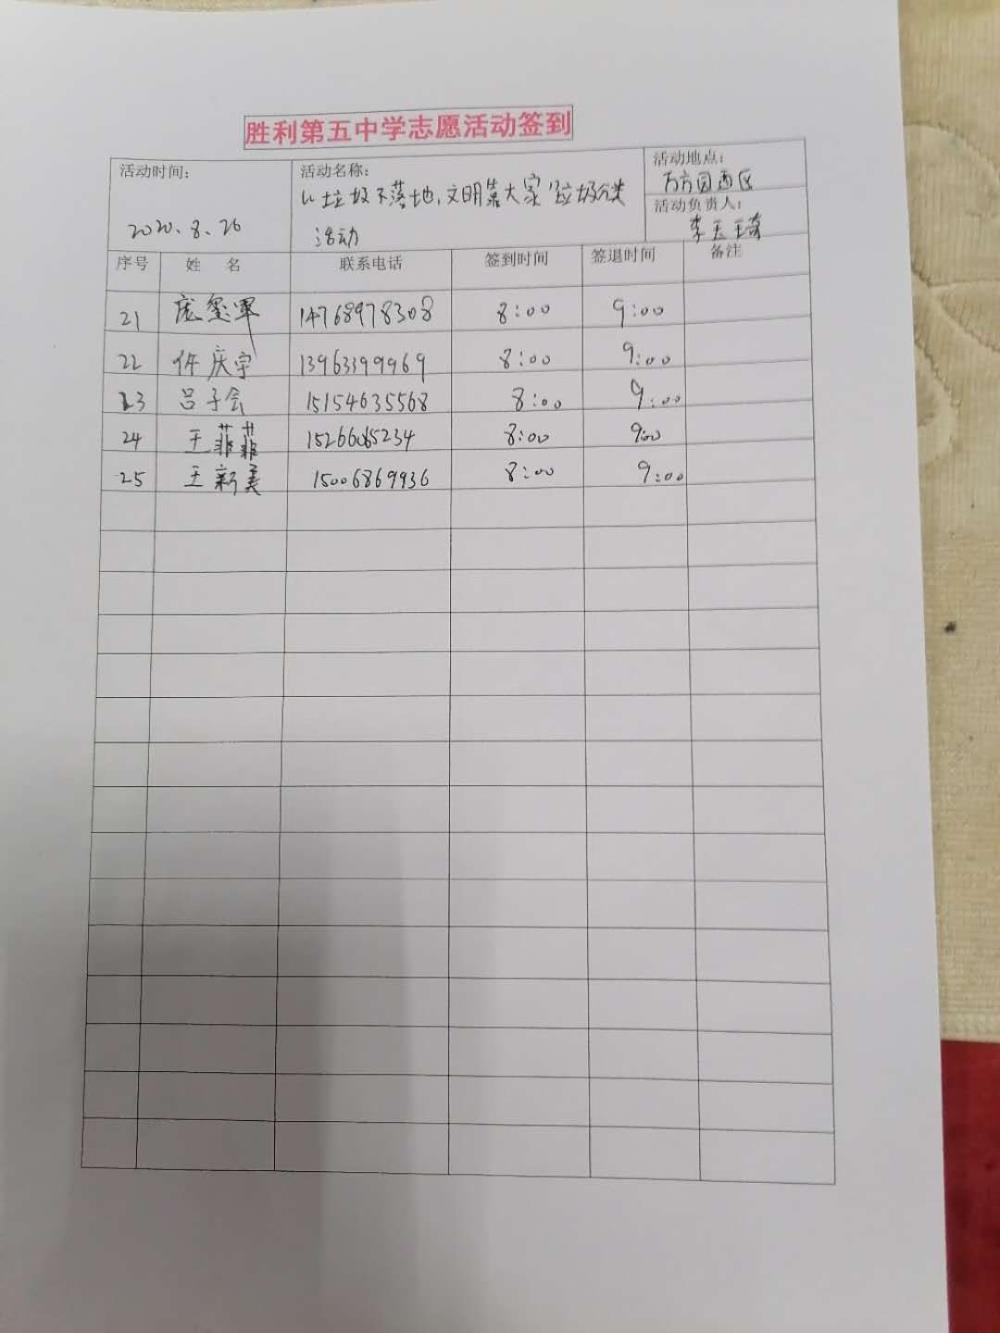 胜利第五中学志愿活动签到
活动时间: 活动名称: 活动地点:
"垃圾不落地,文明靠大家"垃圾分类 万方园西区
活动负责人:
2020.8.26 活动 李玉琦
序号 姓 名 联系电话 签到时间 签退时间 备注
21 庞玺军 14768978308 8:00 9:00
22 许庆宇 13963399969 8:00 9:00
23 吕子会 15154635568 8:00 9:00
24 王菲菲 8:00 9:00
25 王新美 15006869936 8:00 9:00